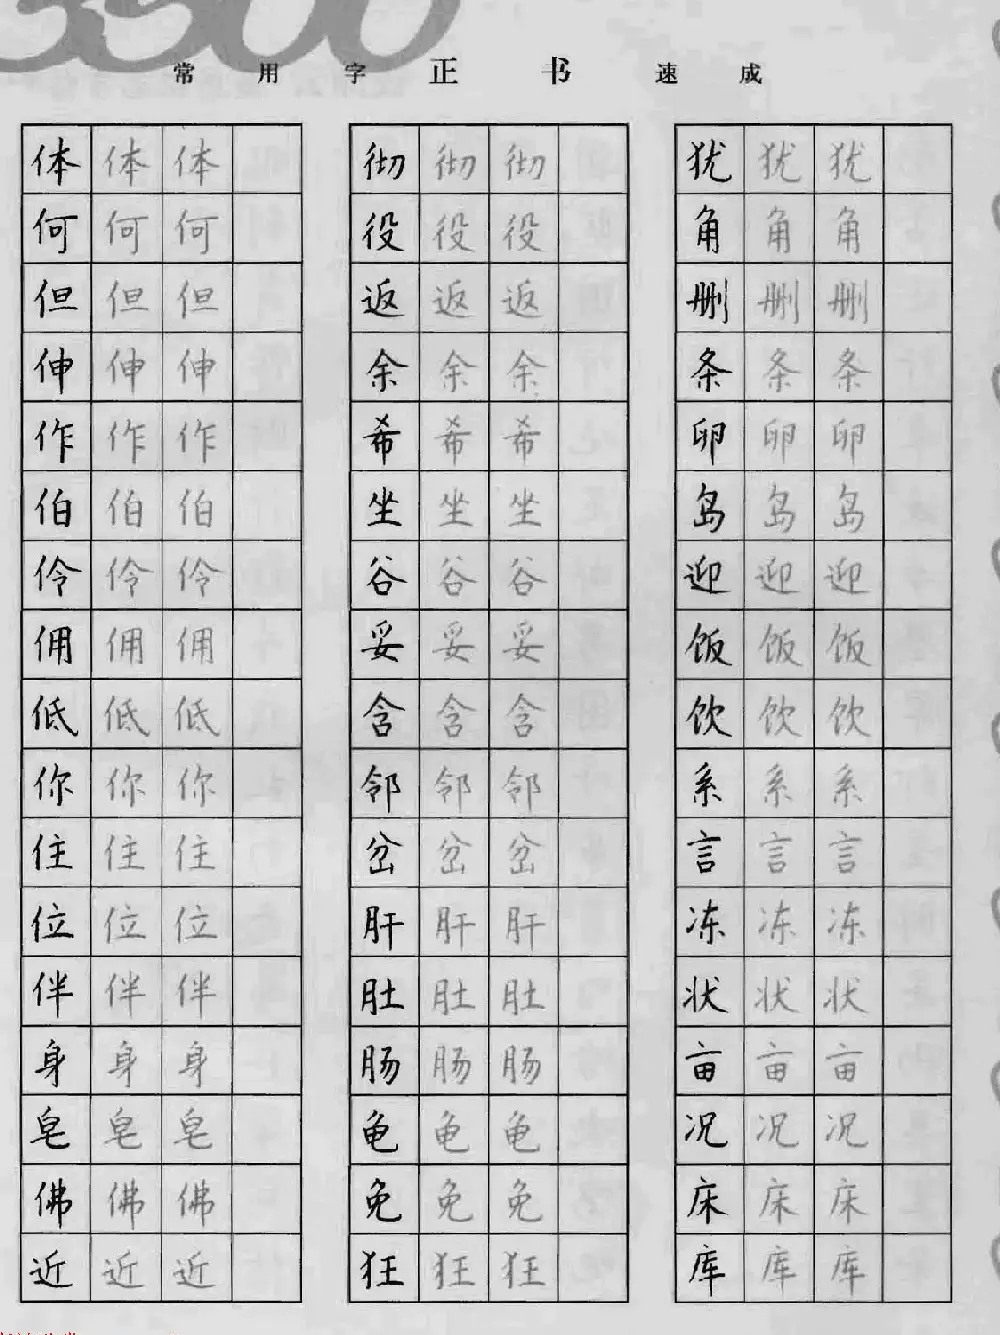 3500
常用字正书速成
体体体 彻彻彻 犹犹犹
何何何 役役役 角角角
但但但 返返返 删删删
伸伸伸 余余余 条条条
作作作 希希希 卵卵卵
伯伯伯 坐坐坐 岛岛岛
伶伶伶 谷谷谷 迎迎迎
佣佣佣 妥妥妥 饭饭饭
低低低 含含含 饮饮饮
你你你 邻邻邻 系系系
住住住 岔岔岔 言言言
位位位 肝肝肝 冻冻冻
伴伴伴 肚肚肚 状状状
身身身 肠肠肠 亩亩亩
皂皂皂 龟龟龟 况况况
佛佛佛 免免免 床床床
近近近 狂狂狂 库库库